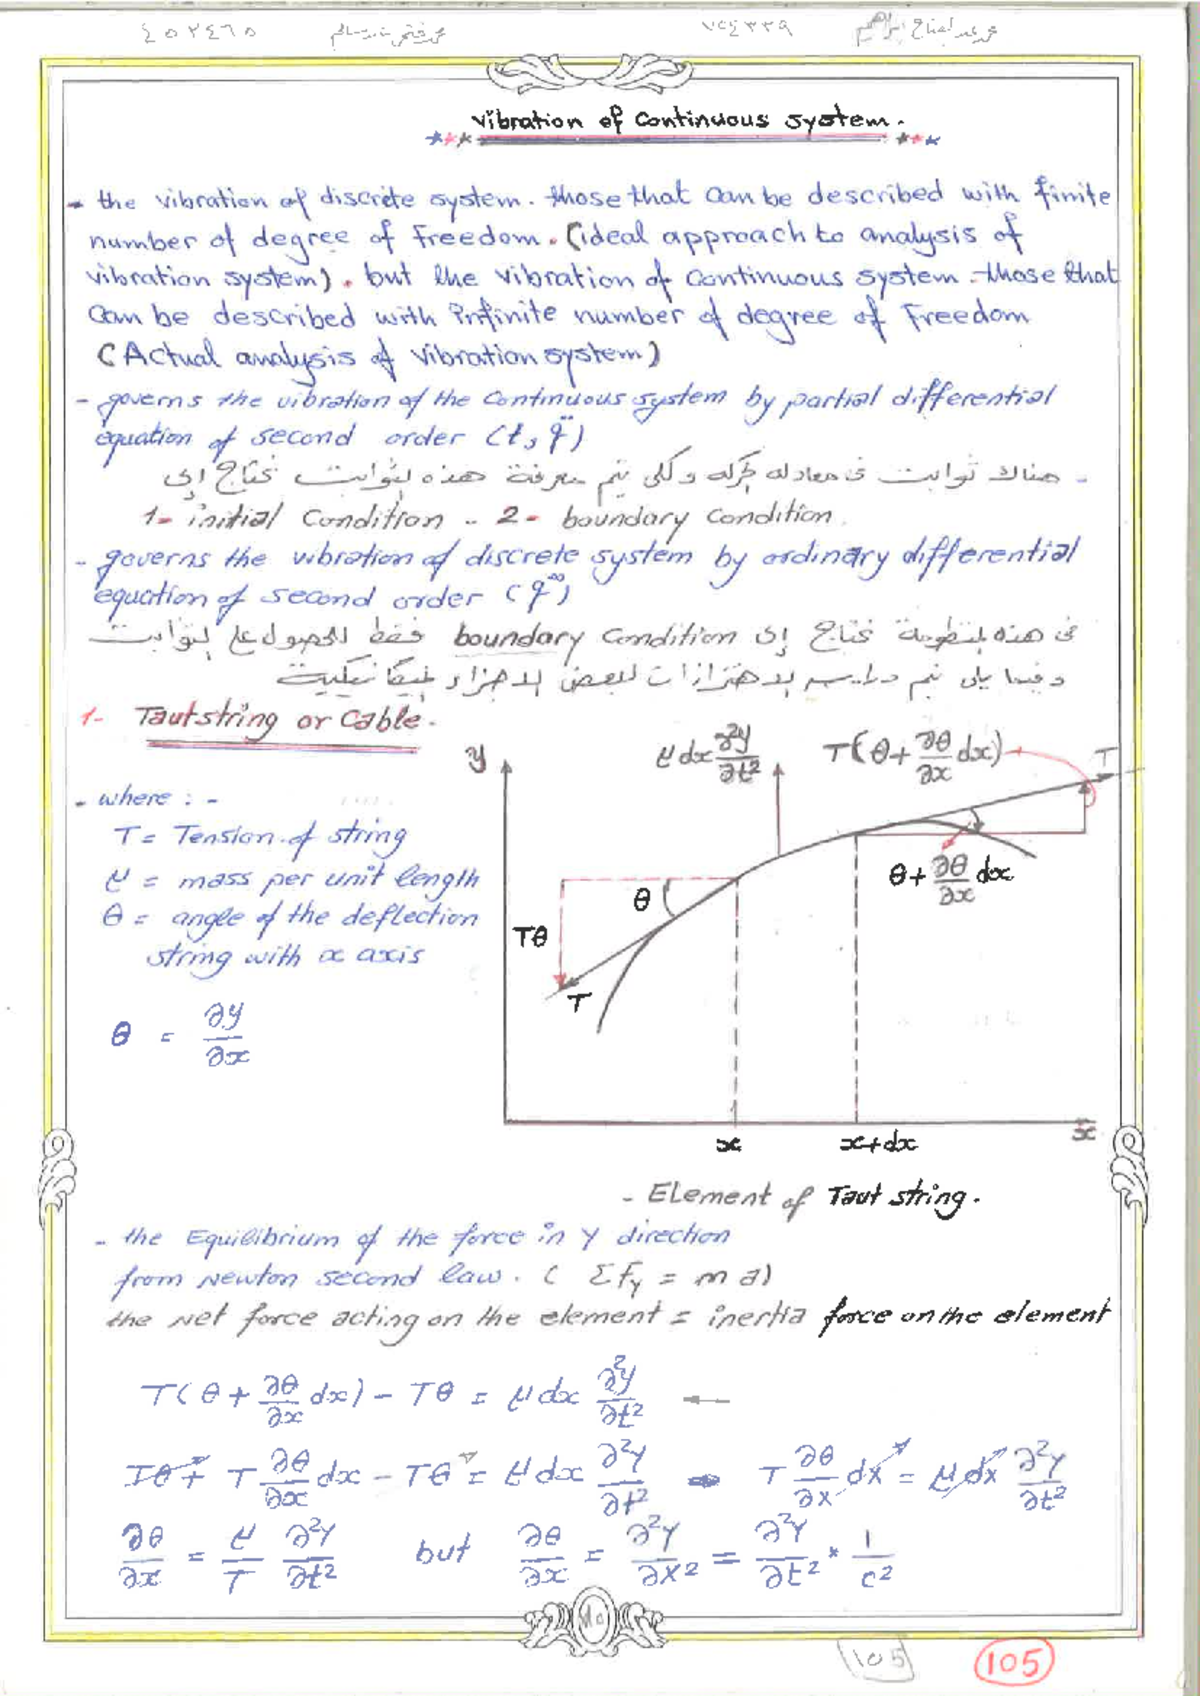 ٤٥٢٤٦٥
Vibration of Continuous System.
- the vibration of discrete system. those that can be described with finite
number of degree of freedom. (ideal approach to analysis of
vibration system). but the vibration of continuous system - those that
can be described with infinite number of degree of freedom
(Actual analysis of vibration system)
- governs the vibration of the continuous system by partial differential
equation of second order (t, q̈)
- هناك ثوابت فى معادله الحركه ولكى يتم معرفة هذه الثوابت نحتاج إلى
1- initial Condition - 2- boundary Condition.
- governs the vibration of discrete system by ordinary differential
equation of second order (q̈)
فى هذه المنظومة نحتاج إلى boundary Condition فقط للحصول على الثوابت
وفيما يلى يتم دراسه الاهتزازات لبعض الاجزاء الميكانيكية
1- Taut string or Cable.
y
μ dx ∂²y/∂t²
T(θ + ∂θ/∂x dx)
T
- where : -
T = Tension of string
μ = mass per unit length
θ = angle of the deflection
string with x axis
θ = ∂y/∂x
θ + ∂θ/∂x dx
θ
Tθ
T
x
x
x+dx
- Element of Taut string.
- the Equilibrium of the force in y direction
from Newton second law. ( Σfy = m a)
the net force acting on the element = inertia force on the element
T(θ + ∂θ/∂x dx) - Tθ = μ dx ∂²y/∂t² ←
Tθ + T ∂θ/∂x dx - Tθ = μ dx ∂²y/∂t² ⇒ T ∂θ/∂x dx = μ dx ∂²y/∂t²
∂θ/∂x = μ/T ∂²y/∂t² but ∂θ/∂x = ∂²y/∂x² = ∂²y/∂t² * 1/c²
105
105